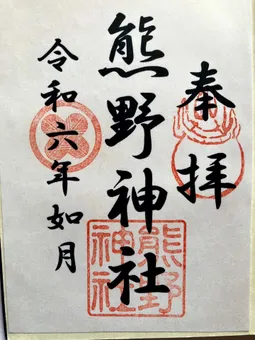 奉拝
熊野神社
熊野
神社
令和六年如月